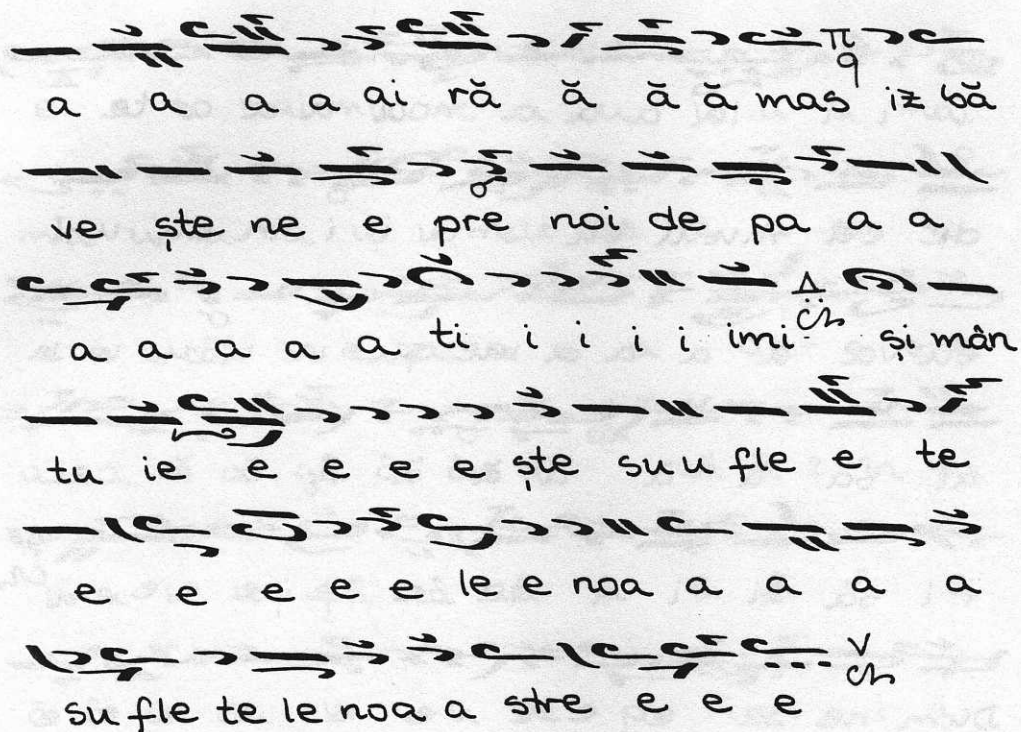 a a a a ai ră ă ă ă mas iz bă
ve ște ne e pre noi de pa a a
a a a a a ti i i i i imi și mân
tu ie e e e e ște su u fle e te
e e e e e le e noa a a a a
su fle te le noa a stre e e e